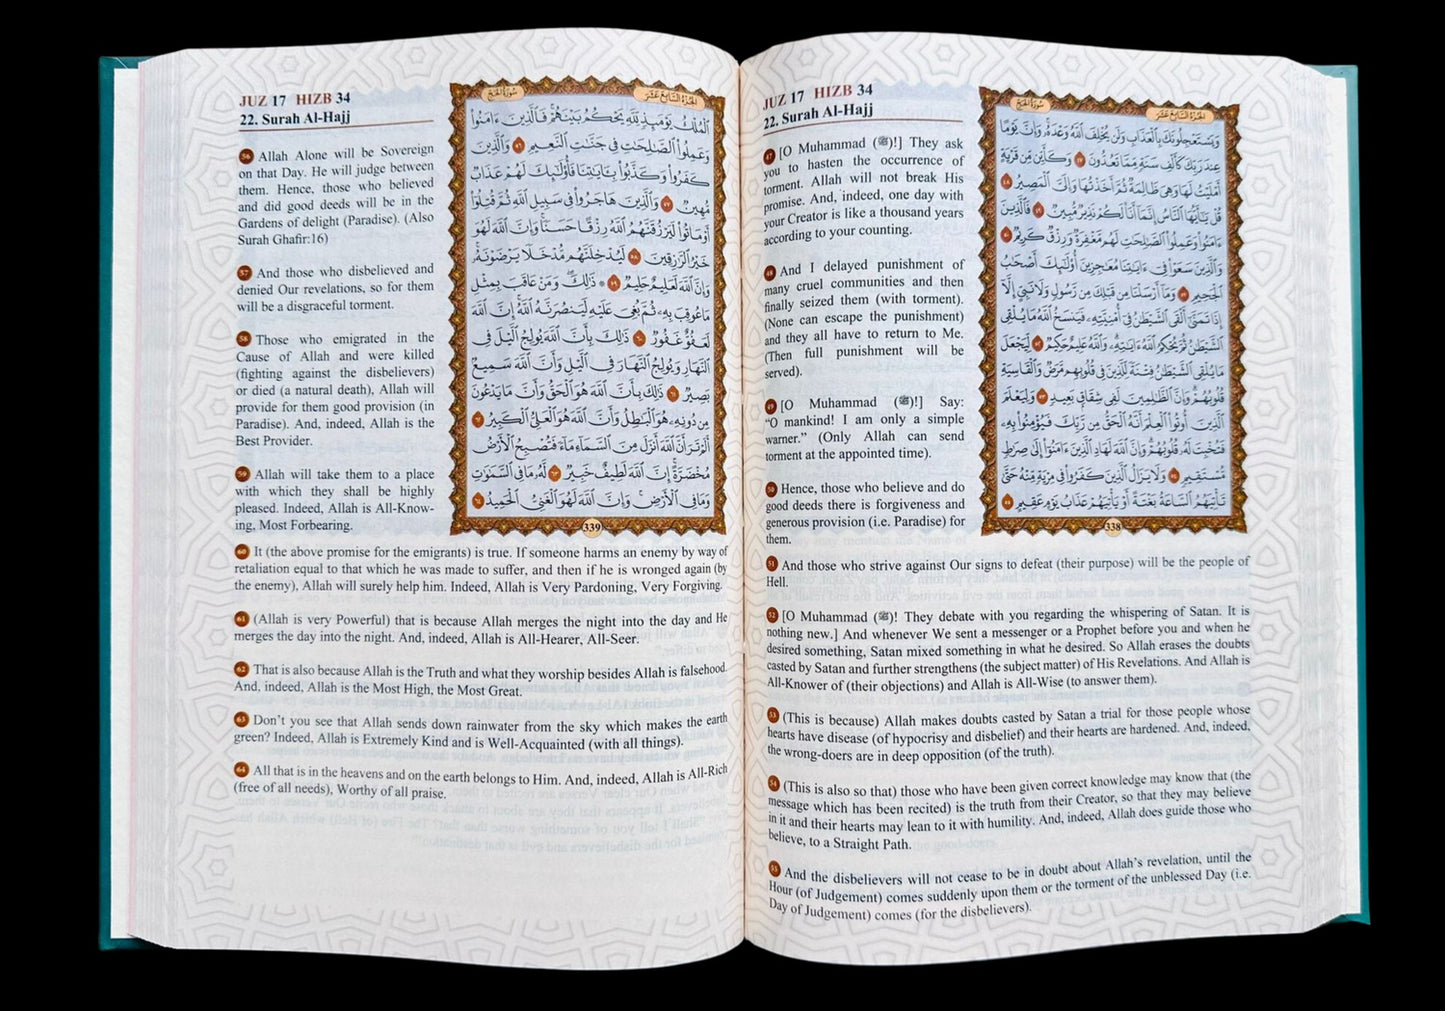 JUZ 17 HIZB 34
22. Surah Al-Hajj
سُورَةُ الحَجِّ
الجُزْءُ السَّابِعَ عَشَرَ
وَيَسْتَعْجِلُونَكَ بِٱلْعَذَابِ وَلَن يُخْلِفَ ٱللَّهُ وَعْدَهُۥ وَإِنَّ يَوْمًا
عِندَ رَبِّكَ كَأَلْفِ سَنَةٍ مِّمَّا تَعُدُّونَ ٤٧ وَكَأَيِّن مِّن قَرْيَةٍ
أَمْلَيْتُ لَهَا وَهِىَ ظَالِمَةٌ ثُمَّ أَخَذْتُهَا وَإِلَىَّ ٱلْمَصِيرُ ٤٨
قُلْ يَٰٓأَيُّهَا ٱلنَّاسُ إِنَّمَآ أَنَا۠ لَكُمْ نَذِيرٌ مُّبِينٌ ٤٩ فَٱلَّذِينَ
ءَامَنُوا۟ وَعَمِلُوا۟ ٱلصَّٰلِحَٰتِ لَهُم مَّغْفِرَةٌ وَرِزْقٌ كَرِيمٌ ٥٠
وَٱلَّذِينَ سَعَوْا۟ فِىٓ ءَايَٰتِنَا مُعَٰجِزِينَ أُو۟لَٰٓئِكَ أَصْحَٰبُ
ٱلْجَحِيمِ ٥١ وَمَآ أَرْسَلْنَا مِن قَبْلِكَ مِن رَّسُولٍ وَلَا نَبِىٍّ إِلَّآ
إِذَا تَمَنَّىٰٓ أَلْقَى ٱلشَّيْطَٰنُ فِىٓ أُمْنِيَّتِهِۦ فَيَنسَخُ ٱللَّهُ مَا يُلْقِى
ٱلشَّيْطَٰنُ ثُمَّ يُحْكِمُ ٱللَّهُ ءَايَٰتِهِۦ وَٱللَّهُ عَلِيمٌ حَكِيمٌ ٥٢ لِّيَجْعَلَ
مَا يُلْقِى ٱلشَّيْطَٰنُ فِتْنَةً لِّلَّذِينَ فِى قُلُوبِهِم مَّرَضٌ وَٱلْقَاسِيَةِ
قُلُوبُهُمْ وَإِنَّ ٱلظَّٰلِمِينَ لَفِى شِقَاقٍۭ بَعِيدٍ ٥٣ وَلِيَعْلَمَ
ٱلَّذِينَ أُوتُوا۟ ٱلْعِلْمَ أَنَّهُ ٱلْحَقُّ مِن رَّبِّكَ فَيُؤْمِنُوا۟ بِهِۦ
فَتُخْبِتَ لَهُۥ قُلُوبُهُمْ وَإِنَّ ٱللَّهَ لَهَادِ ٱلَّذِينَ ءَامَنُوٓا۟ إِلَىٰ صِرَٰطٍ
مُّسْتَقِيمٍ ٥٤ وَلَا يَزَالُ ٱلَّذِينَ كَفَرُوا۟ فِى مِرْيَةٍ مِّنْهُ حَتَّىٰ
تَأْتِيَهُمُ ٱلسَّاعَةُ بَغْتَةً أَوْ يَأْتِيَهُمْ عَذَابُ يَوْمٍ عَقِيمٍ ٥٥
338
47 [O Muhammad (ﷺ)!] They ask
you to hasten the occurrence of
torment. Allah will not break His
promise. And, indeed, one day with
your Creator is like a thousand years
according to your counting.
48 And I delayed punishment of
many cruel communities and then
finally seized them (with torment).
(None can escape the punishment)
and they all have to return to Me.
(Then full punishment will be
served).
49 [O Muhammad (ﷺ)!] Say:
“O mankind! I am only a simple
warner.” (Only Allah can send
torment at the appointed time).
50 Hence, those who believe and do
good deeds there is forgiveness and
generous provision (i.e. Paradise) for
them.
51 And those who strive against Our signs to defeat (their purpose) will be the people of
Hell.
52 [O Muhammad (ﷺ)! They debate with you regarding the whispering of Satan. It is
nothing new.] And whenever We sent a messenger or a Prophet before you and when he
desired something, Satan mixed something in what he desired. So Allah erases the doubts
casted by Satan and further strengthens (the subject matter) of His Revelations. And Allah is
All-Knower of (their objections) and Allah is All-Wise (to answer them).
53 (This is because) Allah makes doubts casted by Satan a trial for those people whose
hearts have disease (of hypocrisy and disbelief) and their hearts are hardened. And, indeed,
the wrong-doers are in deep opposition (of the truth).
54 (This is also so that) those who have been given correct knowledge may know that (the
message which has been recited) is the truth from their Creator, so that they may believe
in it and their hearts may lean to it with humility. And, indeed, Allah does guide those who
believe, to a Straight Path.
55 And the disbelievers will not cease to be in doubt about Allah’s revelation, until the
Hour (of Judgement) comes suddenly upon them or the torment of the unblessed Day (i.e.
Day of Judgement) comes (for the disbelievers).
JUZ 17 HIZB 34
22. Surah Al-Hajj
الجُزْءُ السَّابِعَ عَشَرَ
سُورَةُ الحَجِّ
ٱلْمُلْكُ يَوْمَئِذٍ لِّلَّهِ يَحْكُمُ بَيْنَهُمْ فَٱلَّذِينَ ءَامَنُوا۟
وَعَمِلُوا۟ ٱلصَّٰلِحَٰتِ فِى جَنَّٰتِ ٱلنَّعِيمِ ٥٦ وَٱلَّذِينَ
كَفَرُوا۟ وَكَذَّبُوا۟ بِـَٔايَٰتِنَا فَأُو۟لَٰٓئِكَ لَهُمْ عَذَابٌ
مُّهِينٌ ٥٧ وَٱلَّذِينَ هَاجَرُوا۟ فِى سَبِيلِ ٱللَّهِ ثُمَّ قُتِلُوٓا۟
أَوْ مَاتُوا۟ لَيَرْزُقَنَّهُمُ ٱللَّهُ رِزْقًا حَسَنًا وَإِنَّ ٱللَّهَ لَهُوَ
خَيْرُ ٱلرَّٰزِقِينَ ٥٨ لَيُدْخِلَنَّهُم مُّدْخَلًا يَرْضَوْنَهُۥ
وَإِنَّ ٱللَّهَ لَعَلِيمٌ حَلِيمٌ ٥٩ ۞ ذَٰلِكَ وَمَنْ عَاقَبَ بِمِثْلِ
مَا عُوقِبَ بِهِۦ ثُمَّ بُغِىَ عَلَيْهِ لَيَنصُرَنَّهُ ٱللَّهُ إِنَّ ٱللَّهَ
لَعَفُوٌّ غَفُورٌ ٦٠ ذَٰلِكَ بِأَنَّ ٱللَّهَ يُولِجُ ٱلَّيْلَ فِى
ٱلنَّهَارِ وَيُولِجُ ٱلنَّهَارَ فِى ٱلَّيْلِ وَأَنَّ ٱللَّهَ سَمِيعٌۢ
بَصِيرٌ ٦١ ذَٰلِكَ بِأَنَّ ٱللَّهَ هُوَ ٱلْحَقُّ وَأَنَّ مَا يَدْعُونَ
مِن دُونِهِۦ هُوَ ٱلْبَٰطِلُ وَأَنَّ ٱللَّهَ هُوَ ٱلْعَلِىُّ ٱلْكَبِيرُ ٦٢
أَلَمْ تَرَ أَنَّ ٱللَّهَ أَنزَلَ مِنَ ٱلسَّمَآءِ مَآءً فَتُصْبِحُ ٱلْأَرْضُ
مُخْضَرَّةً إِنَّ ٱللَّهَ لَطِيفٌ خَبِيرٌ ٦٣ لَّهُۥ مَا فِى ٱلسَّمَٰوَٰتِ
وَمَا فِى ٱلْأَرْضِ وَإِنَّ ٱللَّهَ لَهُوَ ٱلْغَنِىُّ ٱلْحَمِيدُ ٦٤
339
56 Allah Alone will be Sovereign
on that Day. He will judge between
them. Hence, those who believed
and did good deeds will be in the
Gardens of delight (Paradise). (Also
Surah Ghafir:16)
57 And those who disbelieved and
denied Our revelations, so for them
will be a disgraceful torment.
58 Those who emigrated in the
Cause of Allah and were killed
(fighting against the disbelievers)
or died (a natural death), Allah will
provide for them good provision (in
Paradise). And, indeed, Allah is the
Best Provider.
59 Allah will take them to a place
with which they shall be highly
pleased. Indeed, Allah is All-Know-
ing, Most Forbearing.
60 It (the above promise for the emigrants) is true. If someone harms an enemy by way of
retaliation equal to that which he was made to suffer, and then if he is wronged again (by
the enemy), Allah will surely help him. Indeed, Allah is Very Pardoning, Very Forgiving.
61 (Allah is very Powerful) that is because Allah merges the night into the day and He
merges the day into the night. And, indeed, Allah is All-Hearer, All-Seer.
62 That is also because Allah is the Truth and what they worship besides Allah is falsehood.
And, indeed, Allah is the Most High, the Most Great.
63 Don’t you see that Allah sends down rainwater from the sky which makes the earth
green? Indeed, Allah is Extremely Kind and is Well-Acquainted (with all things).
64 All that is in the heavens and on the earth belongs to Him. And, indeed, Allah is All-Rich
(free of all needs), Worthy of all praise.